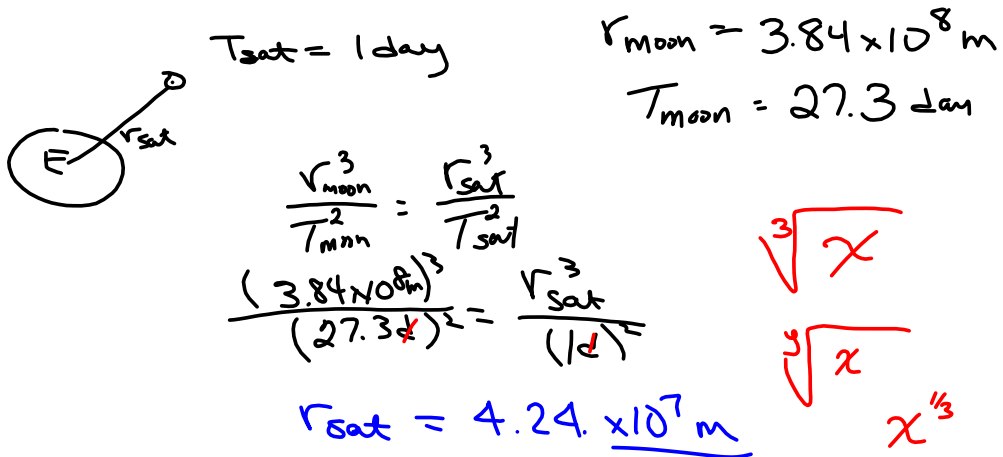 T_sat = 1 day
r_moon = 3.84 x 10^8 m
T_moon = 27.3 day
E
r_sat
r_moon^3 / T_moon^2 = r_sat^3 / T_sat^2
(3.84 x 10^8 m)^3 / (27.3 d)^2 = r_sat^3 / (1d)^2
r_sat = 4.24. x10^7 m
∛x
^y√x
x^1/3